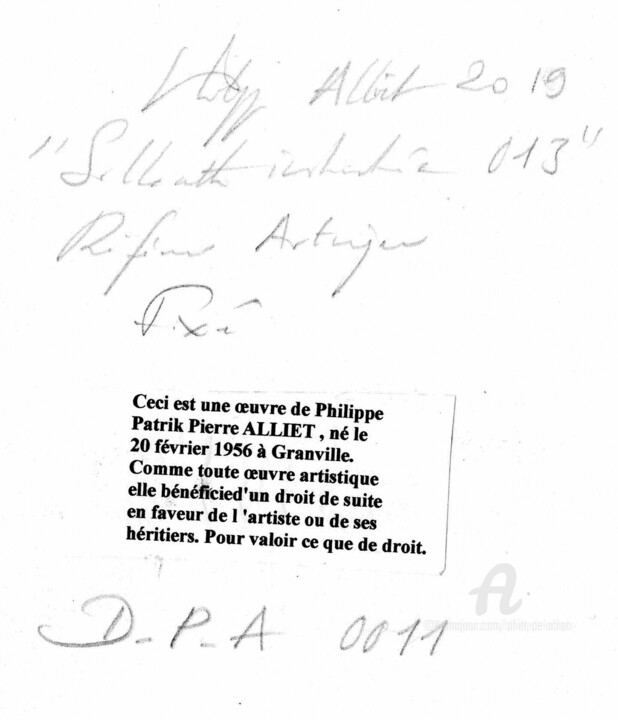 Alliet 2019
013"
Fixé
Ceci est une œuvre de Philippe
Patrik Pierre ALLIET , né le
20 février 1956 à Granville.
Comme toute œuvre artistique
elle bénéficied'un droit de suite
en faveur de l 'artiste ou de ses
héritiers. Pour valoir ce que de droit.
D-P-A 0011